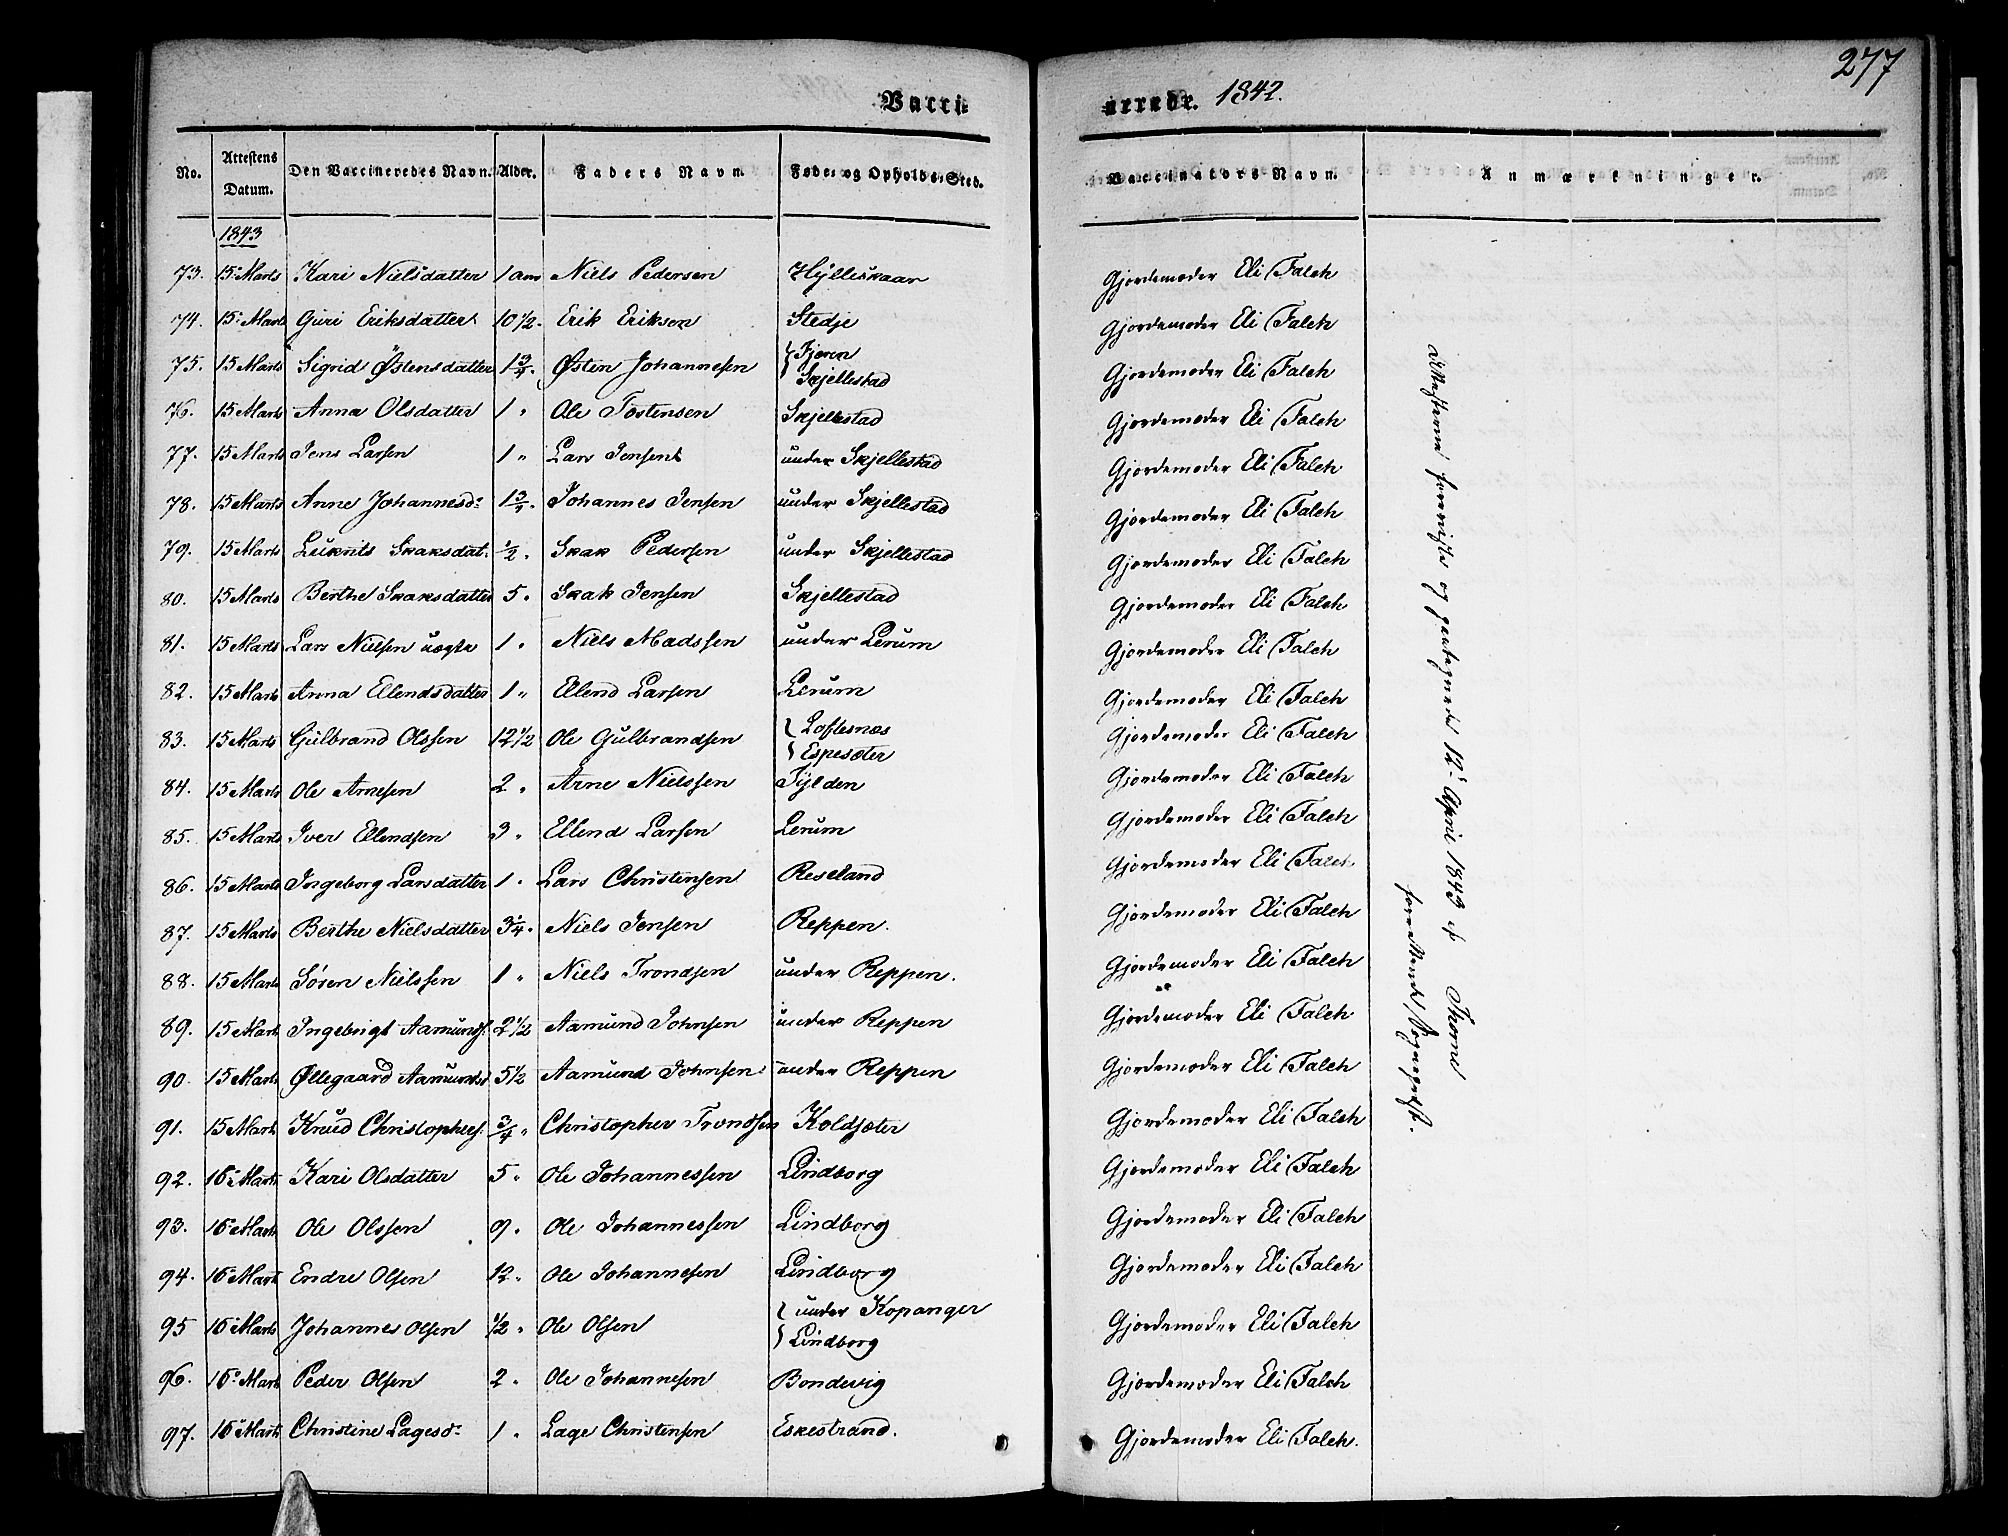 277
Vacci nerede. 1842.
No. Attestens Datum. Den Vaccineredes Navn. Alder. Faders Navn. Føde- og Opholds-Sted. Vaccinators Navn. Anmærkninger.
1843
73. 15 Marts Kari Nielsdatter 1 aar Niels Pedersen Hylleskaar Gjordemoder Eli Falch
74. 15 Marts Guri Eriksdatter 10 1/2 Erik Eriksen Stedje Gjordemoder Eli Falch
75. 15 Marts Sigrid Østensdatter 1 3/4 Østen Johannesen Fjæren Skjellestad Gjordemoder Eli Falch
76. 15 Marts Anna Olsdatter 1 " Ole Tostensen Skjellestad Gjordemoder Eli Falch
77. 15 Marts Jens Larsen 1 " Lars Jensen under Skjellestad Gjordemoder Eli Falch
78. 15 Marts Anne Johannesd: 1 3/4 Johannes Jensen under Skjellestad Gjordemoder Eli Falch
79. 15 Marts Lukrits Skaksdat. 1/2 " Skak Pedersen under Skjellestad Gjordemoder Eli Falch
80. 15 Marts Berthe Skaksdatter 5 " Skak Jensen Skjellestad Gjordemoder Eli Falch
81. 15 Marts Lars Nielsen uægte 1 " Niels Madssen under Lerum Gjordemoder Eli Falch
82. 15 Marts Anna Ellendsdatter 1 " Ellend Larsen Lerum Gjordemoder Eli Falch
83. 15 Marts Gulbrand Olssen 12 1/2 Ole Gulbrandsen Loftesnæs Espesæter Gjordemoder Eli Falch
84. 15 Marts Ole Arnesen 2 " Arne Nielssen Fylden Gjordemoder Eli Falch
85. 15 Marts Iver Ellendsen 3 " Ellend Larsen Lerum Gjordemoder Eli Falch
86. 15 Marts Ingeborg Larsdatter 1 " Lars Christensen Reseland Gjordemoder Eli Falch
87. 15 Marts Berthe Nielsdatter 3/4 " Niels Jensen Reppen. Gjordemoder Eli Falch
88. 15 Marts Søren Nielssen 1 " Niels Trondsen under Reppen. Gjordemoder Eli Falch
89. 15 Marts Ingebrigt Aamunds. 2 1/2 Aamund Johnsen under Reppen Gjordemoder Eli Falch
90. 15 Marts Øllegaard Aamundsd 5 1/2 Aamund Johnsen under Reppen Gjordemoder Eli Falch
91. 15 Marts Knud Christophers. 3/4 " Christopher Trondsen Koldsæter Gjordemoder Eli Falch
92. 16 Marts Kari Olsdatter 5 " Ole Johannessen Lindborg Gjordemoder Eli Falch
93. 16 Marts Ole Olssen 9 " Ole Johannessen Lindborg Gjordemoder Eli Falch
94. 16 Marts Endre Olsen 12 " Ole Johannesen Lindborg Gjordemoder Eli Falch
95 16 Marts Johannes Olsen 1/2 " Ole Olsen under Kopanger Lindborg Gjordemoder Eli Falch
96. 16 Marts Peder Olsen 2 " Ole Johannesen Bondevig Gjordemoder Eli Falch
97. 16 Marts Christine Lagesd: 1 " Lage Christensen Eskestrand. Gjordemoder Eli Falch.
Attesterne foreviste og paategnede 12 April 1843 af
Sognepræst.